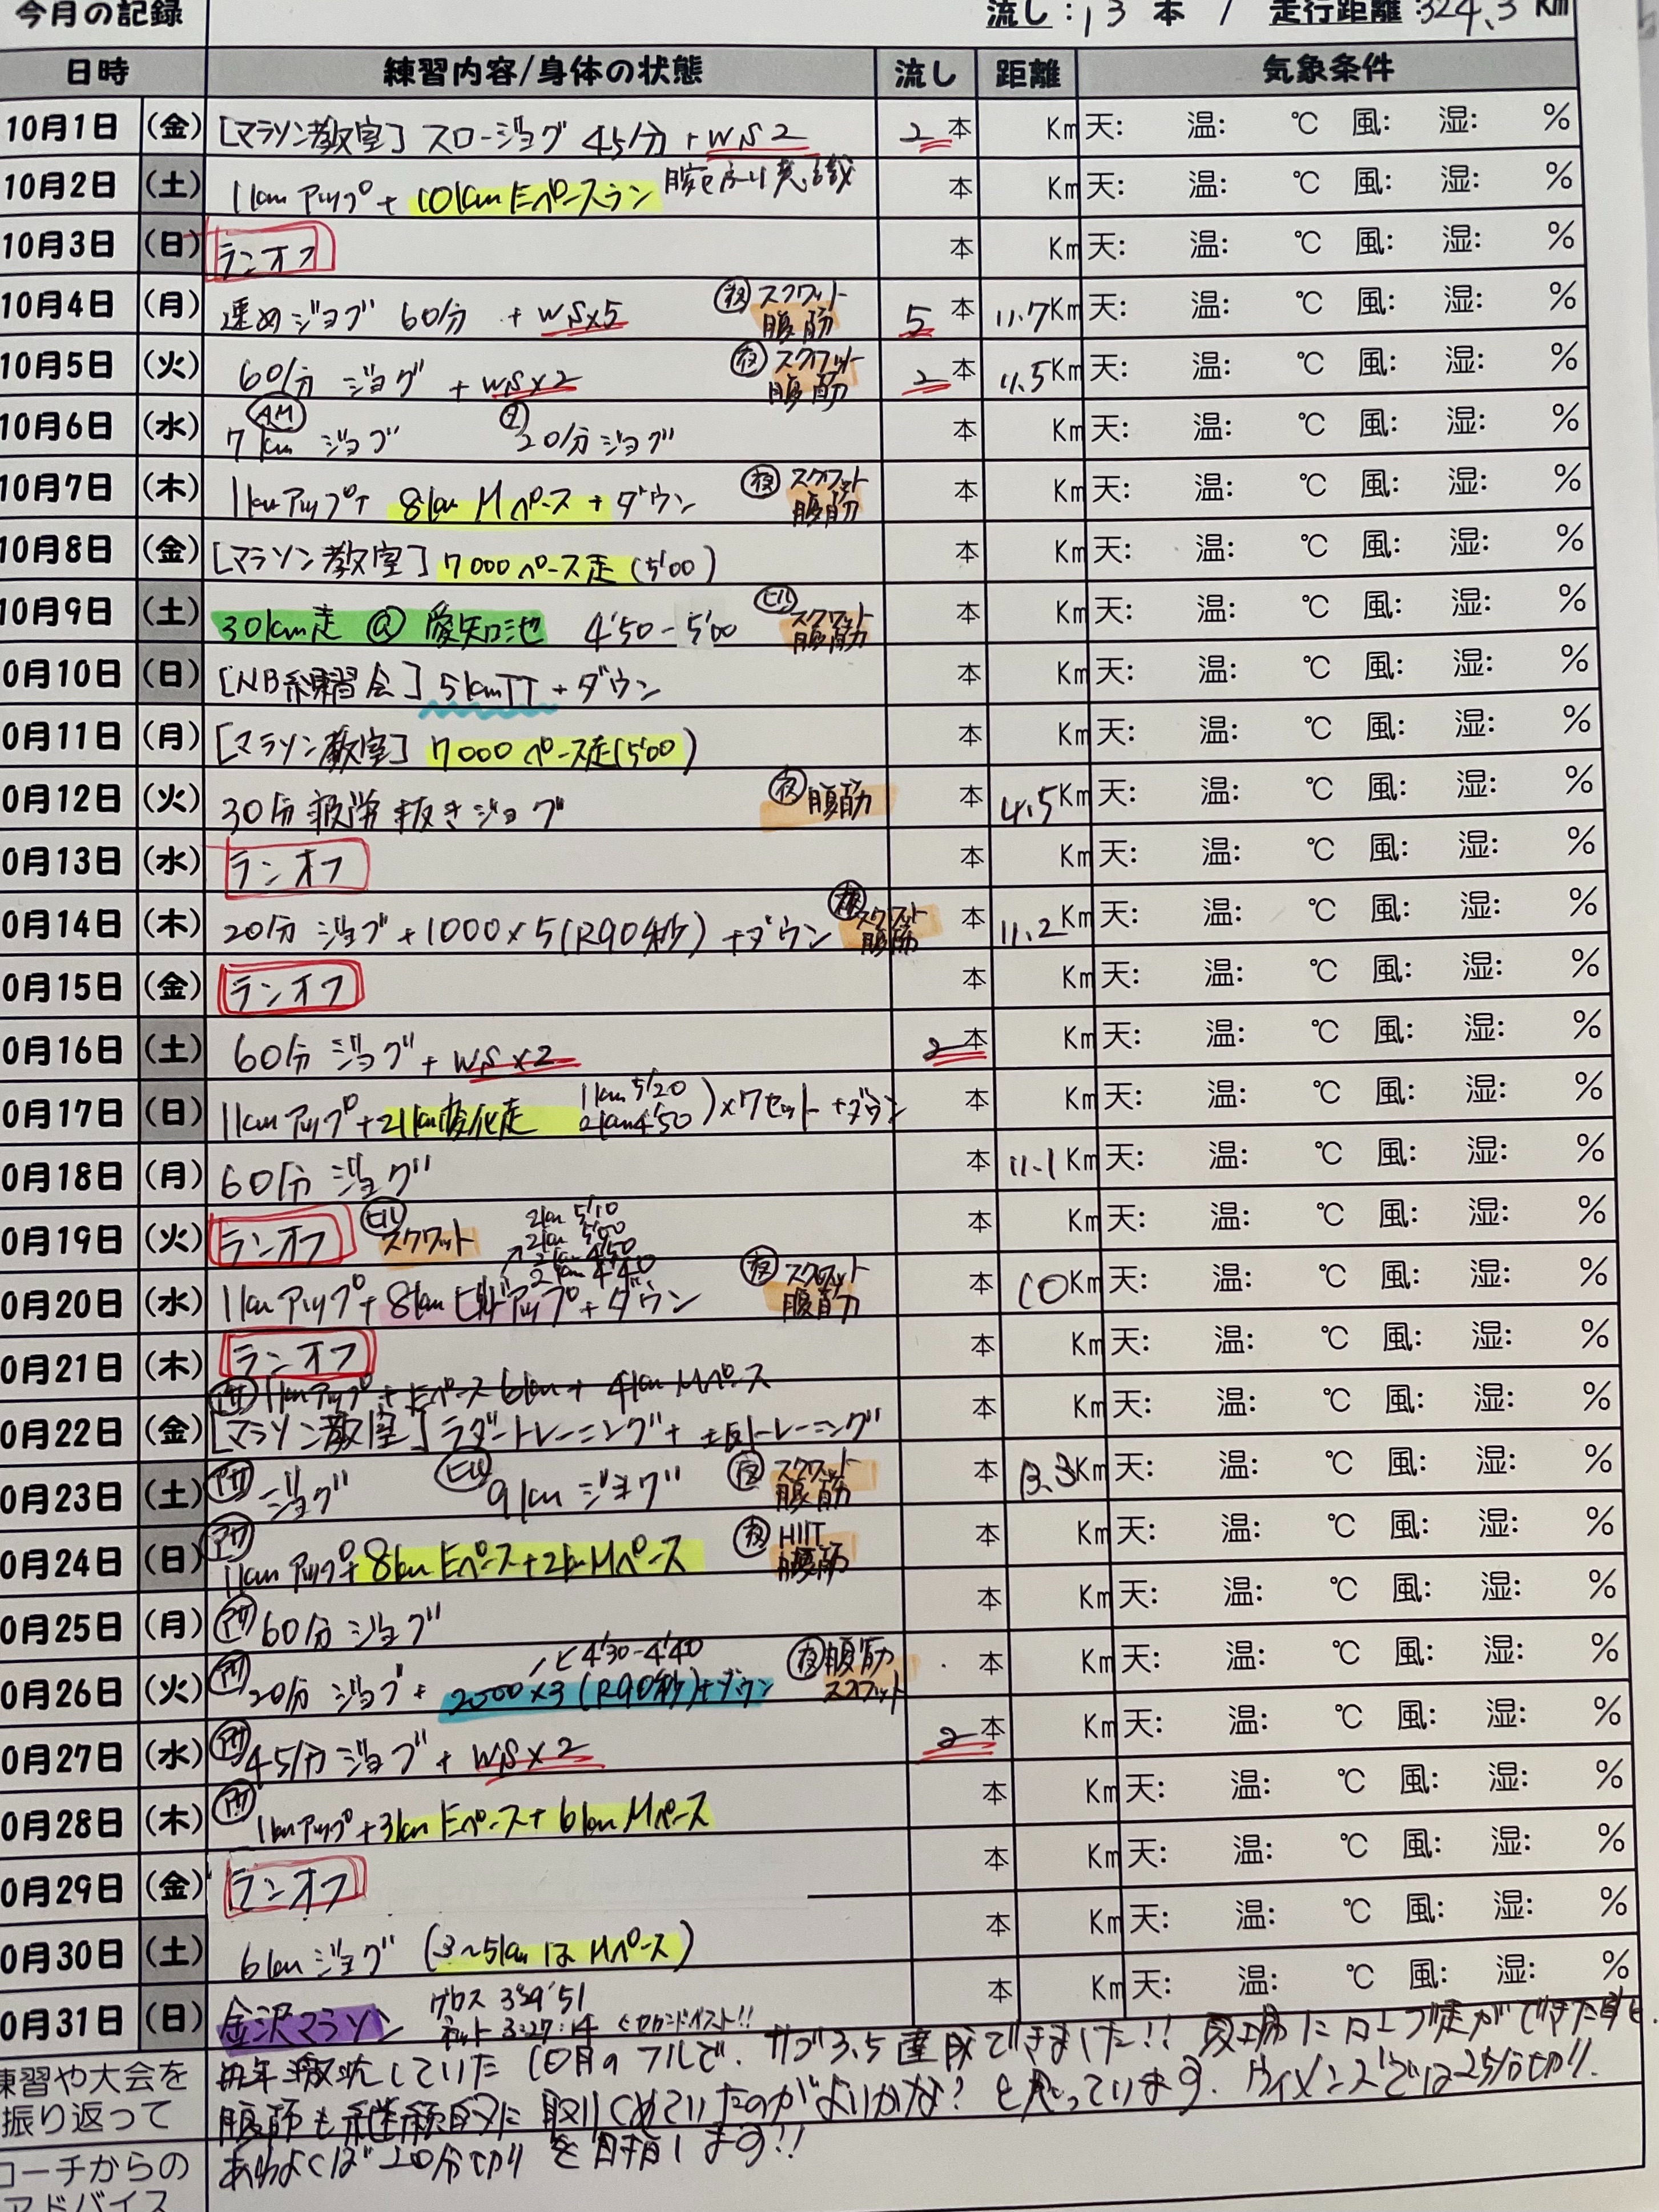 今月の記録 流し:13本 / 走行距離:324.3 Km
日時 練習内容/身体の状態 流し 距離 気象条件
10月1日 (金) [マラソン教室] スロージョグ 45分 + WS2 2本 Km 天: 温: ℃ 風: 湿: %
10月2日 (土) 1kmアップ + 10km Eペースラン 腕ふり意識 本 Km 天: 温: ℃ 風: 湿: %
10月3日 (日) ランオフ 本 Km 天: 温: ℃ 風: 湿: %
10月4日 (月) 速めジョグ 60分 + WS×5 夜 スクワット 腹筋 5本 11.7Km 天: 温: ℃ 風: 湿: %
10月5日 (火) 60分 ジョグ + WS×2 夜 スクワット 腹筋 2本 11.5Km 天: 温: ℃ 風: 湿: %
10月6日 (水) AM 7km ジョグ 20分ジョグ 本 Km 天: 温: ℃ 風: 湿: %
10月7日 (木) 1kmアップ+ 8km Mペース + ダウン 夜 スクワット 腹筋 本 Km 天: 温: ℃ 風: 湿: %
10月8日 (金) [マラソン教室] 7000ペース走 (5'00) 本 Km 天: 温: ℃ 風: 湿: %
10月9日 (土) 30km走 @ 愛知池 4'50-5'00 ヒル スクワット 腹筋 本 Km 天: 温: ℃ 風: 湿: %
0月10日 (日) [NB練習会] 5kmTT + ダウン 本 Km 天: 温: ℃ 風: 湿: %
0月11日 (月) [マラソン教室] 7000ペース走(5'00) 本 Km 天: 温: ℃ 風: 湿: %
0月12日 (火) 30分 疲労抜きジョグ 夜 腹筋 本 4.5Km 天: 温: ℃ 風: 湿: %
0月13日 (水) ランオフ 本 Km 天: 温: ℃ 風: 湿: %
0月14日 (木) 20分 ジョグ + 1000×5(R90秒) + ダウン 夜 スクワット 腹筋 本 11.2Km 天: 温: ℃ 風: 湿: %
0月15日 (金) ランオフ 本 Km 天: 温: ℃ 風: 湿: %
0月16日 (土) 60分 ジョグ + WS×2 2本 Km 天: 温: ℃ 風: 湿: %
0月17日 (日) 1kmアップ+21km変化走 1km 5'20 2km4'50)×7セット +ダウン 本 Km 天: 温: ℃ 風: 湿: %
0月18日 (月) 60分 ジョグ 本 11.1Km 天: 温: ℃ 風: 湿: %
0月19日 (火) ランオフ ヒル スクワット 本 Km 天: 温: ℃ 風: 湿: %
2km 5'10
2km 5'00
2km 4'50
2km 4'40
0月20日 (水) 1kmアップ+8kmビルドアップ + ダウン 夜 スクワット 腹筋 本 10Km 天: 温: ℃ 風: 湿: %
0月21日 (木) ランオフ 本 Km 天: 温: ℃ 風: 湿: %
アサ 1kmアップ + Eペース 6km + 4km Mペース
0月22日 (金) [マラソン教室] ラダートレーニング + トレーニング 本 Km 天: 温: ℃ 風: 湿: %
0月23日 (土) アサ ジョグ ヒル 9kmジョグ 夜 スクワット 腹筋 本 13.3Km 天: 温: ℃ 風: 湿: %
0月24日 (日) アサ 1kmアップ+8km Eペース+2km Mペース 夜 HIIT 腹筋 本 Km 天: 温: ℃ 風: 湿: %
0月25日 (月) アサ 60分 ジョグ 本 Km 天: 温: ℃ 風: 湿: %
4'30-4'40
0月26日 (火) アサ 20分 ジョグ + 2000×3 (R90秒)+ダウン 夜 腹筋 スクワット 本 Km 天: 温: ℃ 風: 湿: %
0月27日 (水) アサ 45分ジョグ + WS×2 2本 Km 天: 温: ℃ 風: 湿: %
0月28日 (木) アサ 1kmアップ+3km Eペース+6km Mペース 本 Km 天: 温: ℃ 風: 湿: %
0月29日 (金) ランオフ 本 Km 天: 温: ℃ 風: 湿: %
0月30日 (土) 6kmジョグ (3~5kmはMペース) 本 Km 天: 温: ℃ 風: 湿: %
0月31日 (日) 金沢マラソン グロス 3:29'51 ネット 3:27:14 ←セカンドベスト!! 本 Km 天: 温: ℃ 風: 湿: %
練習や大会を振り返って
毎年撃沈していた10月のフルで、サブ3.5達成できました!! 夏場にロング走ができた事と
腹筋も継続的に取りくめていたのがよいかな? と思っています。ウィメンズでは25分切り。
コーチからのアドバイス
あわよくば20分切りを目指します!!